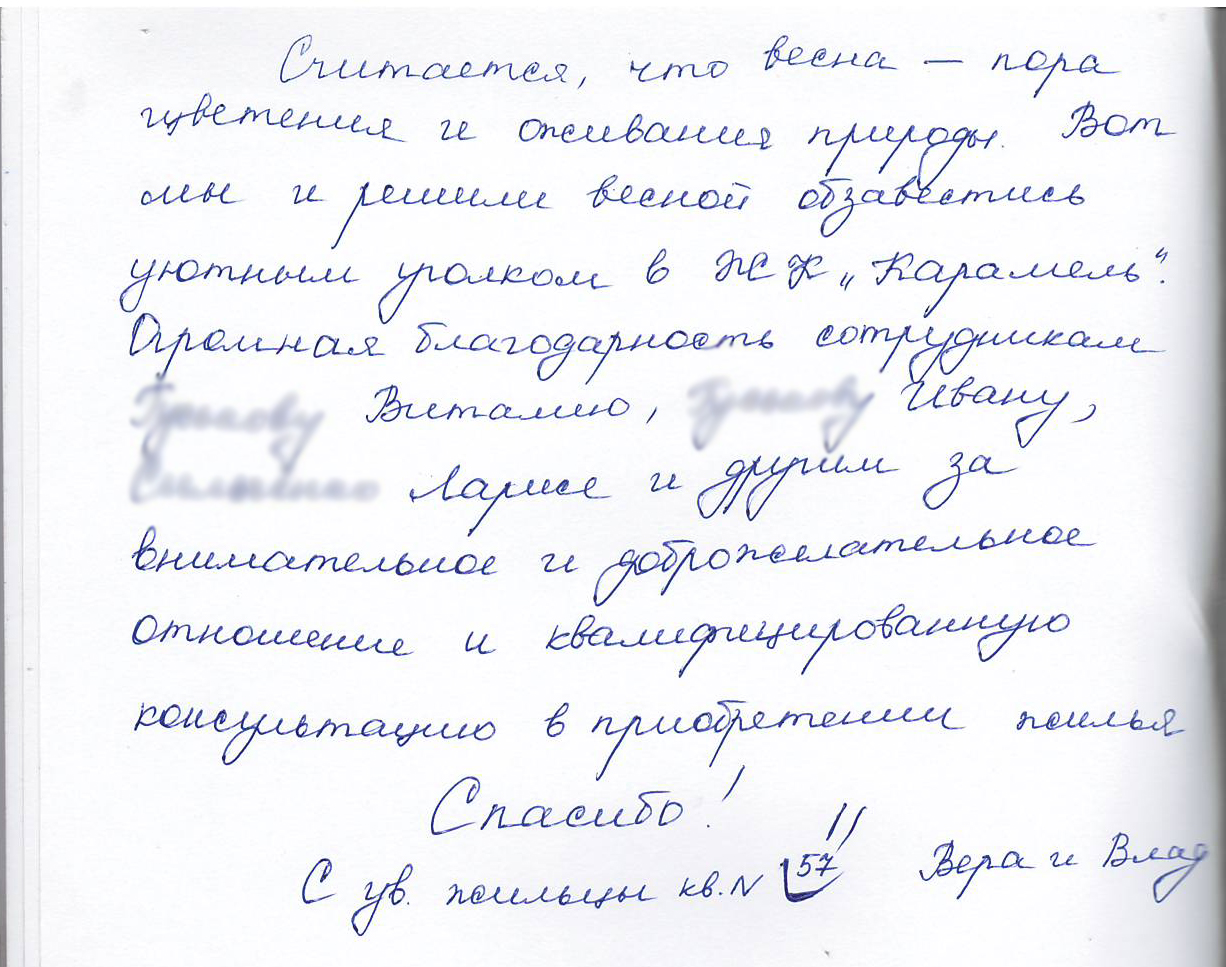 Считается, что весна — пора
цветения и оживания природы. Вот
мы и решили весной обзавестись
уютным уголком в ЖК „Карамель“.
Огромная благодарность сотрудникам
Виталию, Ивану,
Ларисе и другим за
внимательное и доброжелательное
отношение и квалифицированную
консультацию в приобретении жилья
Спасибо!
С ув. жильцы кв. N 57 Вера и Влад